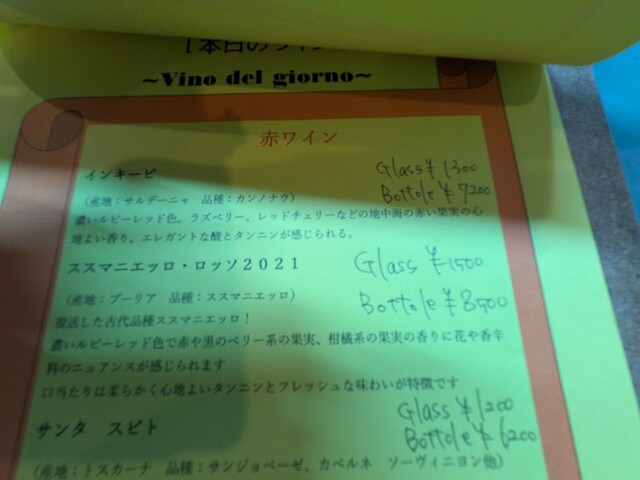 ［本日のワイン
~Vino del giorno~
赤ワイン
インキーピ Glass ¥1300
Bottole ¥7200
(産地：サルデーニャ 品種：カンノナウ)
濃いルビーレッド色。ラズベリー、レッドチェリーなどの地中海の赤い果実の心
地よい香り。エレガントな酸とタンニンが感じられる。
ススマニエッロ・ロッソ２０２１ Glass ¥1500
(産地：プーリア 品種：ススマニエッロ) Bottole ¥8500
復活した古代品種ススマニエッロ！
濃いルビーレッド色で赤や黒のベリー系の果実、柑橘系の果実の香りに花や香辛
料のニュアンスが感じられます
口当たりは柔らかく心地よいタンニンとフレッシュな味わいが特徴です
Glass ¥1200
サンタ スピト Bottole ¥6200
(産地：トスカーナ 品種：サンジョベーゼ、カベルネ ソーヴィニヨン他)